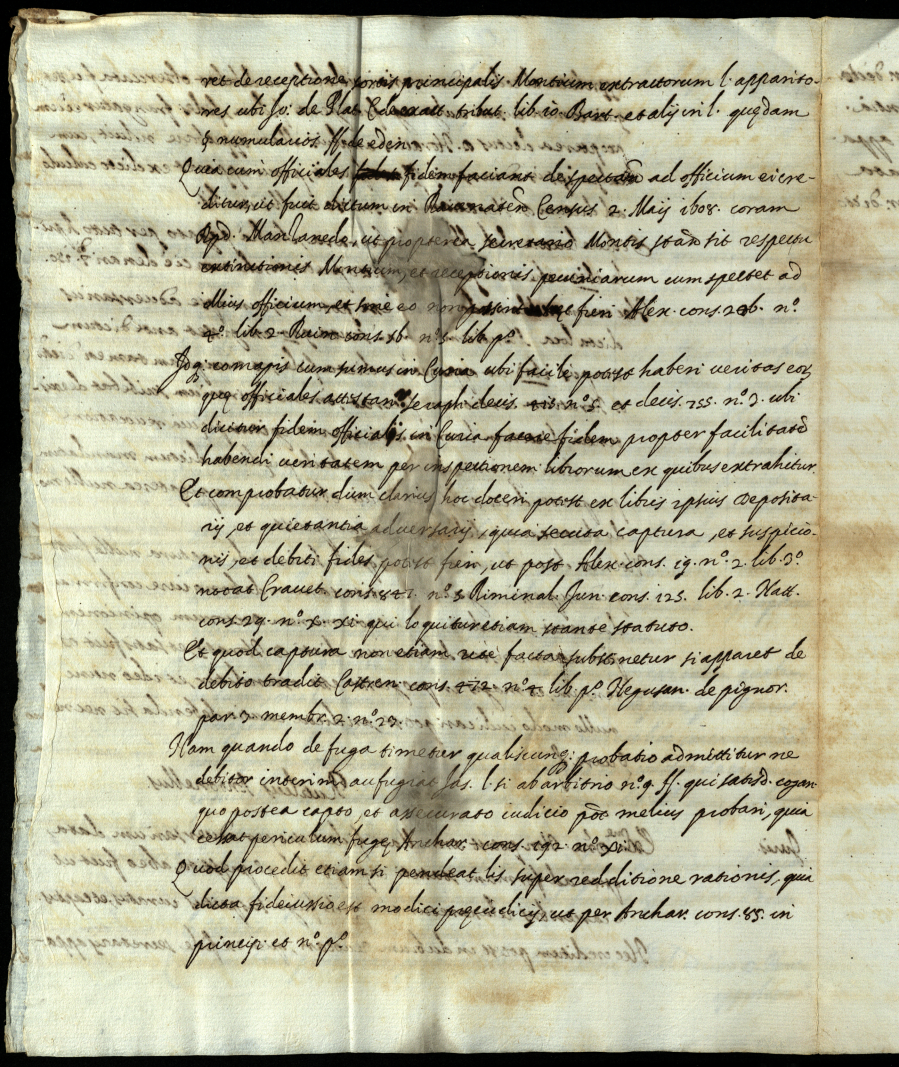 ret de receptione sortis principalis Montium extractorum l. apparito-
res ubi Jo: de Plat. C. de exact. tribut. lib. io. Bart. et alij in l. quędam
§ numularios ff. de eden.
Quia cum officiales fidem faciant de spectan. ad officium ei cre-
ditur, ut fuit dictum in Census 2. Maij 1608. coram
Rpd. Manzanedo, ut propterea secretario Montis stan. sit respectu
extinctionis Montium, et receptionis pecuniarum cum spectet ad
illius officium, et sine eo non possint fieri Alex. cons. 206. nº.
lib. 2. Ruin. cons. 16. nº. 5. lib. pº.
Idq; eo magis cum simus in Curia ubi facile potest haberi veritas eor,
quę officiales attestan. Seraph. decis. nº. 5. et decis. 755. nº. 3. ubi
dicitur fidem officialis in Curia facere fidem propter facilitatē
habendi veritatem per inspectionem librorum ex quibus extrahitur.
Et comprobatur dum clarius hoc doceri potest ex libris ipsius Deposita-
rij, et quietantia adversarij, quia secuta captura, et suspicio-
nis, et debiti fides potest fieri, ut post Alex. cons. 19. nº. 2. lib. 3º.
notat Cravet. cons. nº. 5 Riminal. Jun. cons. 125. lib. 2. Natt.
cons. 29. nº. x. xi. qui loquitur etiam stante statuto.
Et quod captura non etiam rite facta substinetur si apparet de
debito tradit Castren. cons. 472. nº. lib. pº. Negusan. de pignor.
par. 3 membr. 2. nº. 23.
Nam quando de fuga timetur qualiscunq; probatio admittitur ne
debitor interim aufugiat Jas. l. si ab arbitrio nº. 9. ff. qui satisd. cogan.
quo postea capto, et assecurato iudicio põt melius probari, quia
cessat periculum fugę Anchar. cons. 192. nº. xi.
Quod procedit etiam si pendeat lis super redditione rationis, quia
dicta fideiussio est modici pręiudicij, ut per Anchar. cons. 85. in
princip. et nº. pº.